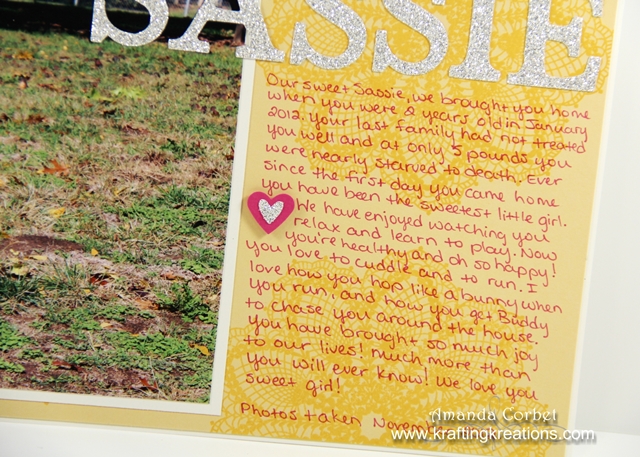 SASSIE
Our sweet Sassie, we brought you home
when you were 2 years old in January
2012. Your last family had not treated
you well and at only 5 pounds you
were nearly starved to death. Ever
since the first day you came home
you have been the sweetest little girl.
We have enjoyed watching you
relax and learn to play. Now
you're healthy and oh so happy!
You love to cuddle and to run. I
love how you hop like a bunny when
you run, and how you get Buddy
to chase you around the house.
You have brought so much joy
to our lives! Much more than
you will ever know! We love you
sweet girl!
Photos taken
Amanda Corbet
www.kraftingkreations.com